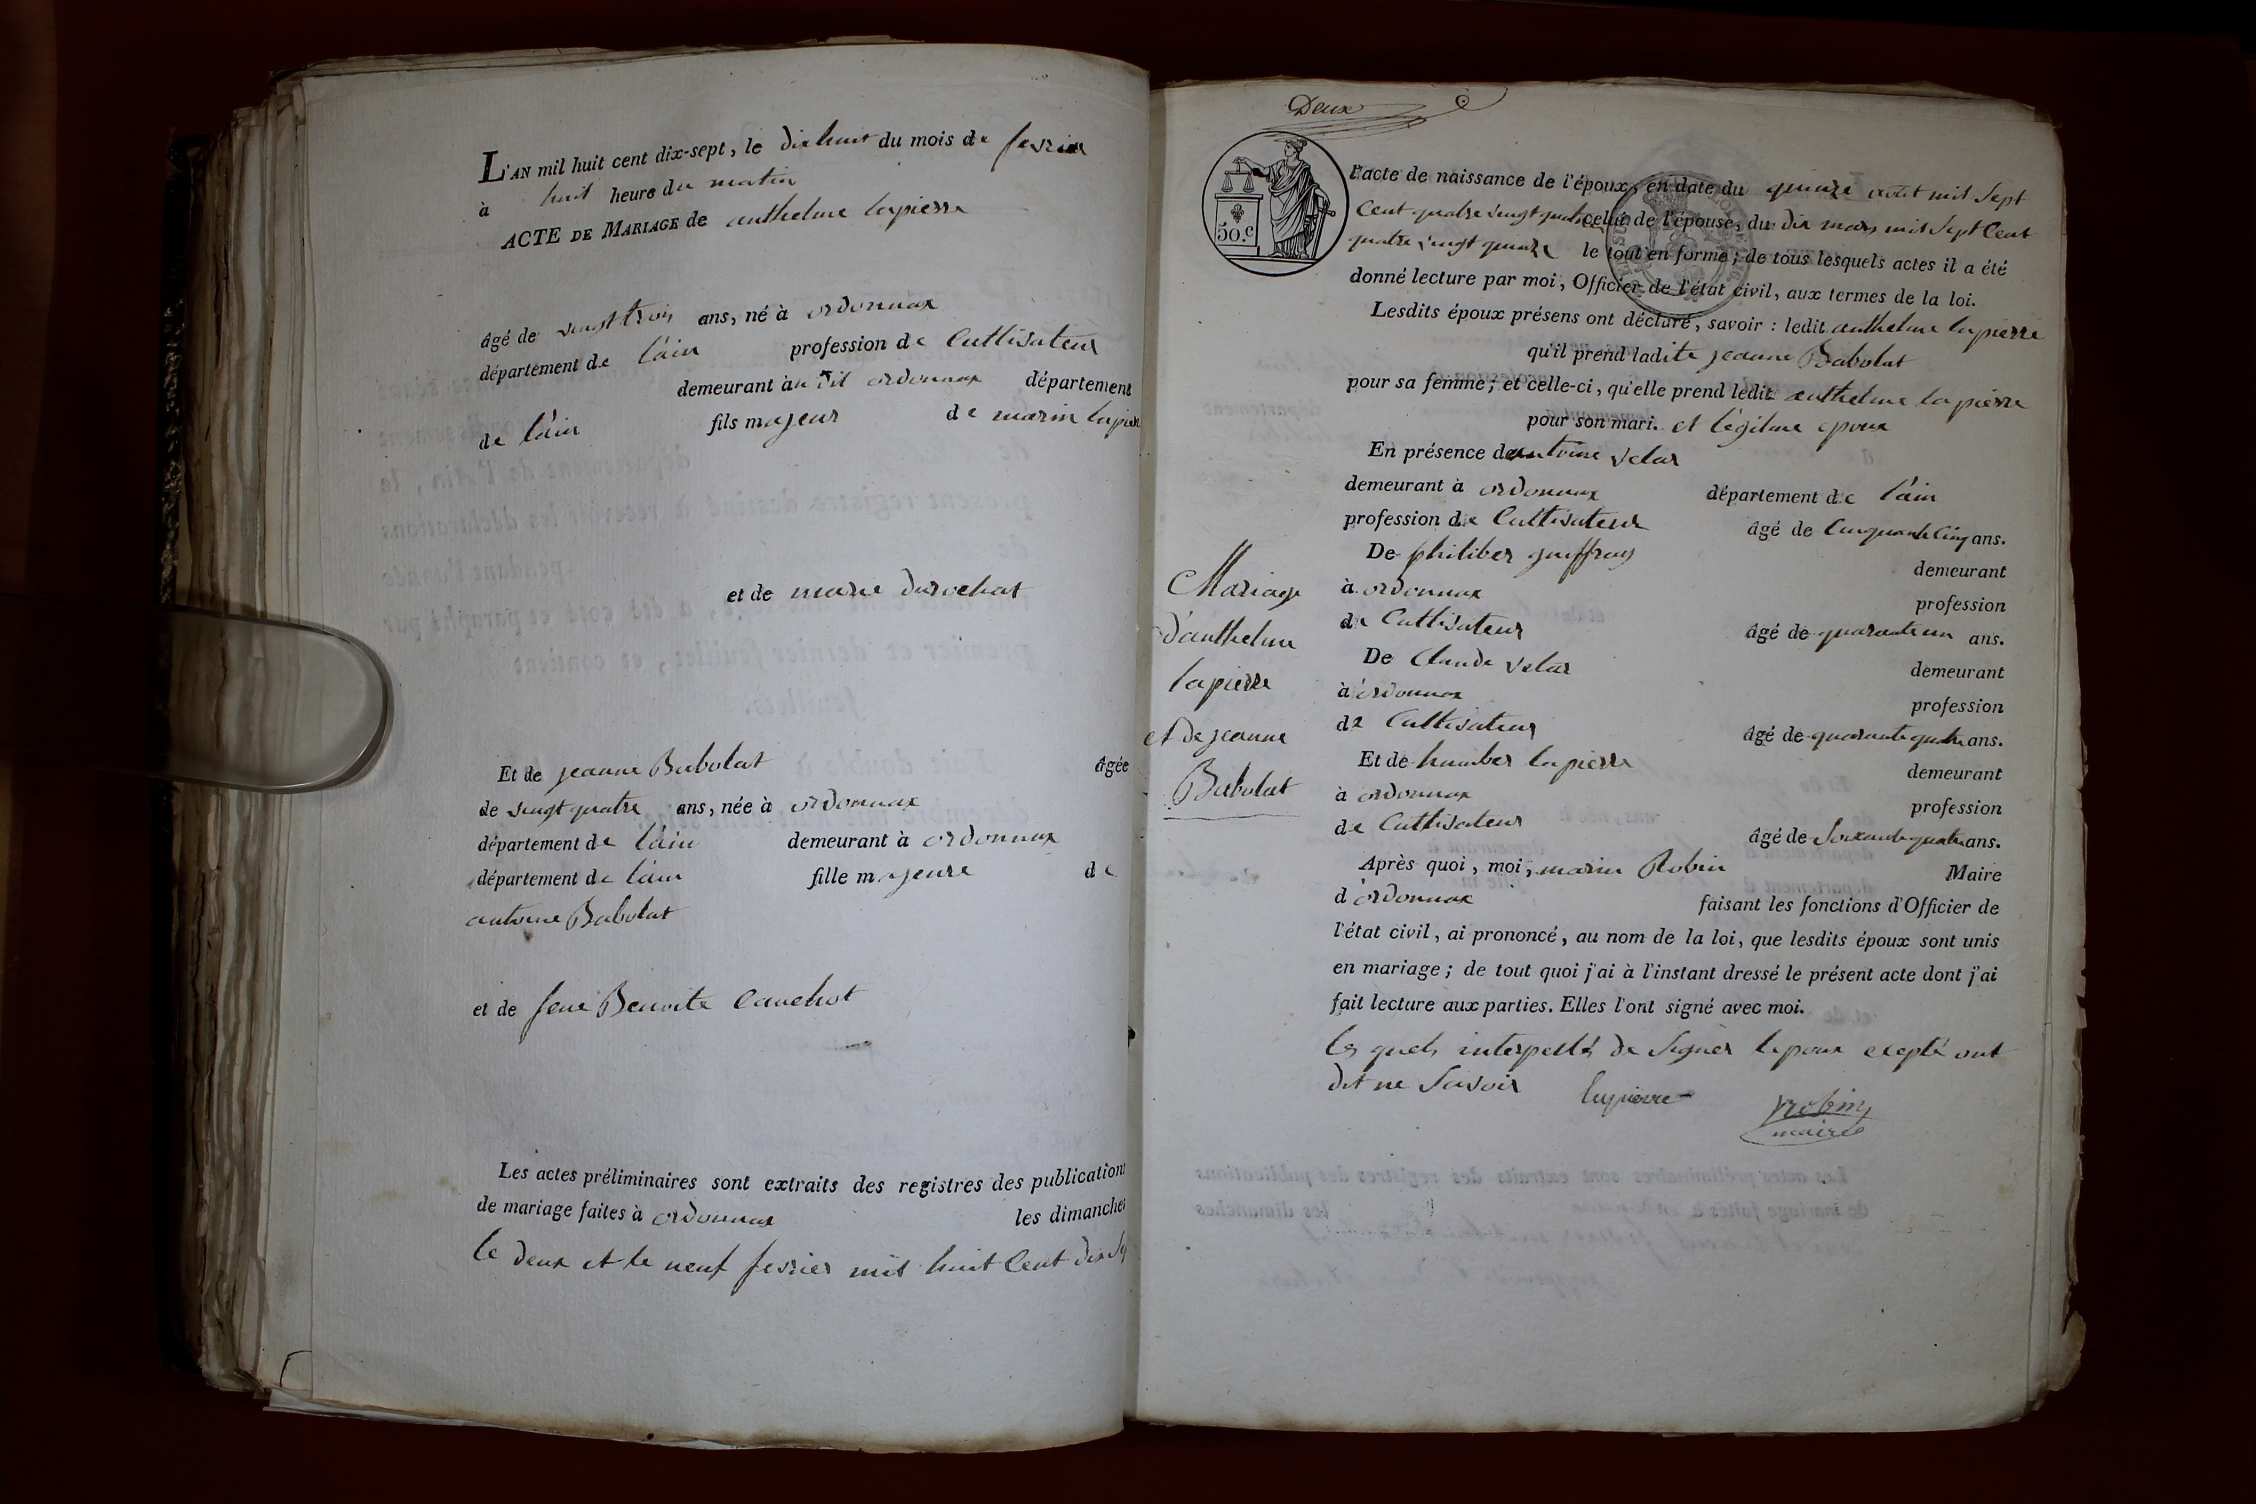 L'AN mil huit cent dix-sept, le dix huit du mois de fevrier
à huit heure du matin
ACTE DE MARIAGE de anthelme lapierre
âgé de vingt trois ans, né à ordonnax
département de l'ain profession de Cultivateur
demeurant au dit ordonnax département
de l'ain fils majeur de marin lapierr
et de marie durochat
Et de jeanne Babolat âgée
de vingt quatre ans, née à ordonnax
département de l'ain demeurant à ordonnax
département de l'ain fille majeure de
antoine Babolat
et de feue Benoite Cauchot
Les actes préliminaires sont extraits des registres des publications
de mariage faites à ordonnax les dimanches
le deux et le neuf fevrier mil huit Cent dix Sep
Deux
50.c
l'acte de naissance de l'époux, en date du quinze aout mil Sept
Cent quatre vingt quatorze celui de l'épouse, du dix mars mil Sept Cent
quatre vingt quinze le tout en forme; de tous lesquels actes il a été
donné lecture par moi, Officier de l'état civil, aux termes de la loi.
Lesdits époux présens ont déclaré, savoir : ledit anthelme lapierre
qu'il prend ladite jeanne Babolat
pour sa femme; et celle-ci, qu'elle prend ledit anthelme lapierre
pour son mari. et légitime epoux
En présence de antoine velas
demeurant à ordonnax département de l'ain
profession de Cultivateur âgé de Cinquante Cinq ans.
De philiber goiffray demeurant
à ordonnax profession
de Cultivateur âgé de quarante un ans.
De Claude velas demeurant
à ordonnax profession
de Cultivateur âgé de quarante quatre ans.
Et de humber lapierre demeurant
à ordonnax profession
de Cultivateur âgé de Soixante quatre ans.
Après quoi, moi, marin Robin Maire
d'ordonnax faisant les fonctions d'Officier de
l'état civil, ai prononcé, au nom de la loi, que lesdits époux sont unis
en mariage; de tout quoi j'ai à l'instant dressé le présent acte dont j'ai
fait lecture aux parties. Elles l'ont signé avec moi.
les quels interpellés de Signer lepoux exepté ont
dit ne Savoir lapierre robin
maire
Mariage
d'anthelme
lapierre
et de jeanne
Babolat